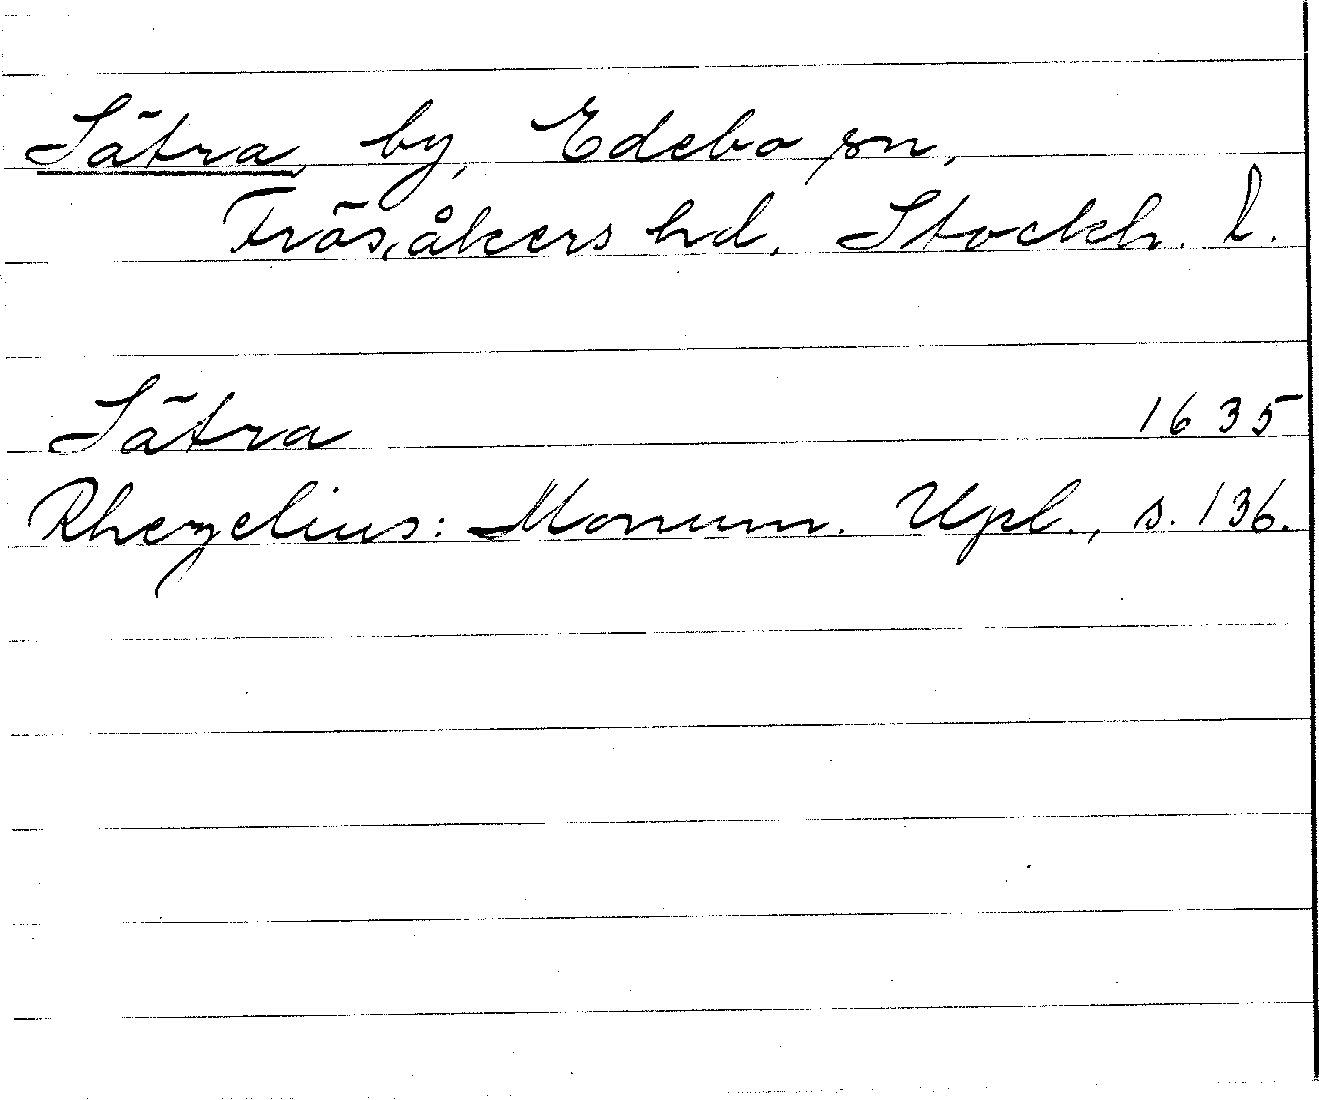 Sätra, by, Edebo sn,
Frösåkers hd. Stockh. l.
Sätra 1635
Rhezelius: Monum. Upl., s. 136.